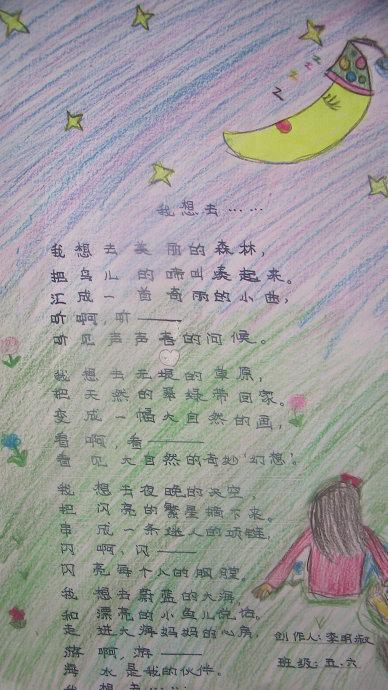 我想去……
我想去美丽的森林，
把鸟儿的啼叫凑起来。
汇成一首奇丽的小曲，
听啊，听——
听见声声春的问候。
我想去无垠的草原，
把天然的翠绿带回家。
变成一幅大自然的画，
看啊，看——
看见大自然的奇妙'幻想'。
我想去夜晚的天空，
把闪亮的繁星摘下来。
串成一条迷人的项链，
闪啊，闪——
闪亮每个人的胸膛。
我想去蔚蓝的大海，
和漂亮的小鱼儿说话。
走进大海妈妈的心房，
游啊，游——
海水是我的伙伴。
我想去……
创作人：李明淑
班级：五.六
z
z
z